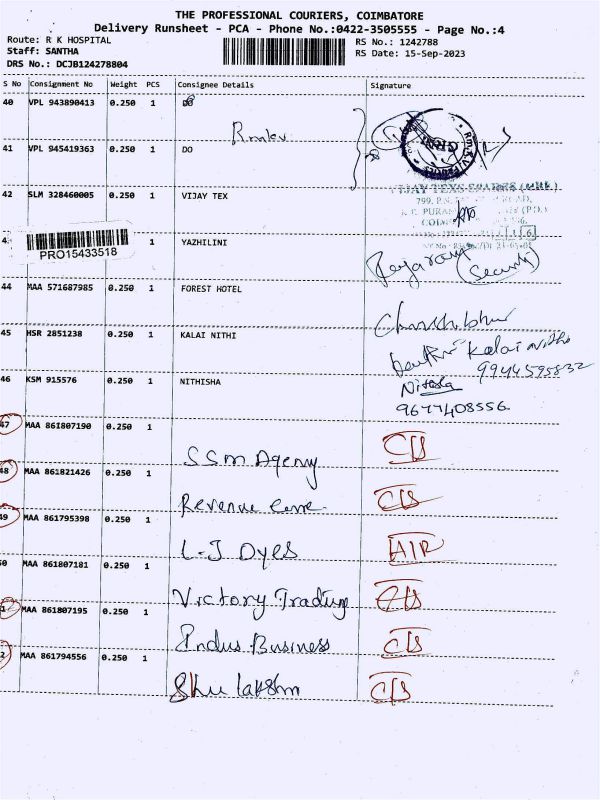 THE PROFESSIONAL COURIERS, COIMBATORE
Delivery Runsheet - PCA - Phone No.:0422-3505555 - Page No.:4
Route: R K HOSPITAL
Staff: SANTHA
DRS No.: DCJB124278804
RS No.: 1242788
RS Date: 15-Sep-2023
S No Consignment No Weight PCS Consignee Details Signature
40 VPL 943890413 0.250 1
41 VPL 945419363 0.250 1 DO
42 SLM 328460005 0.250 1 VIJAY TEX
PRO15433518 1 YAZHILINI
(Security)
44 MAA 571687985 0.250 1 FOREST HOTEL
45 HSR 2851238 0.250 1 KALAI NITHI
Kalai nithi
9944595832
46 KSM 915576 0.250 1 NITHISHA
9677408556
47 MAA 861807190 0.250 1 SSM Agency
48 MAA 861821426 0.250 1 Revenue
49 MAA 861795398 0.250 1 L-J Dyes AIR
0 MAA 861807181 0.250 1 Victory Trading
1 MAA 861807195 0.250 1 Indus Business
2 MAA 861794556 0.250 1